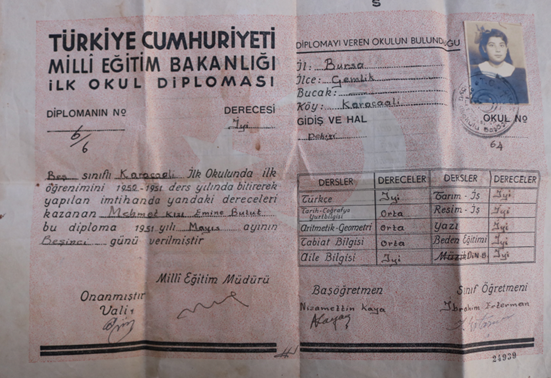 TÜRKİYE CUMHURİYETİ
MİLLİ EĞİTİM BAKANLIĞI
İLK OKUL DİPLOMASI
DİPLOMANIN No
DERECESİ
6/6
İyi
Beş sınıflı Karacaali İlk Okulunda ilk
öğrenimini 1950-1951 ders yılında bitirerek
yapılan imtihanda yandaki dereceleri
kazanan Mehmet Kızı Emine Bulut
bu diploma 1951 yılı Mayıs ayının
Beşinci günü verilmiştir
Milli Eğitim Müdürü
Onanmıştır
Vali
DİPLOMAYI VEREN OKULUN BULUNDUĞU
İl: Bursa
İlçe: Gemlik
Bucak:
Köy: Karacaali
GİDİŞ VE HAL
OKUL No
64
DERSLER DERECELER DERSLER DERECELER
Türkçe İyi Tarım-İş İyi
Tarih-Coğrafya Yurtbilgisi Orta Resim-İş İyi
Aritmetik-Geometri Orta Yazı İyi
Tabiat Bilgisi Orta Beden Eğitimi İyi
Aile Bilgisi İyi Müzik İyi
Başöğretmen
Nizamettin Kaya
Sınıf Öğretmeni
İbrahim
24939